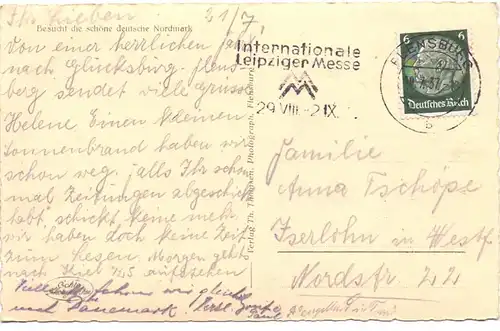 Ihr Lieben 21/7.
Besucht die schöne deutsche Nordmark
Von einer herrlichen
nach Glücksburg-Flens-
berg sendet viele Grüsse
Helene. Einen kleinen
Sonnenbrand haben wir
schon weg. falls Ihr schon
mal Zeitungen abgeschickt
habt, schickt keine mehr
wir haben doch keine Zeit
zum lesen. Morgen geht's
nach Kiel
fahren wir gleich
nach Dänemark.
Verlag Th. Thomsen, Photograph, Flensburg
Internationale
Leipziger Messe
29.VIII.-2.IX.
FLENSBURG
6 6
Deutsches Reich
Familie
Anna Tschöpe
Iserlohn in Westf
Nordstr. 22